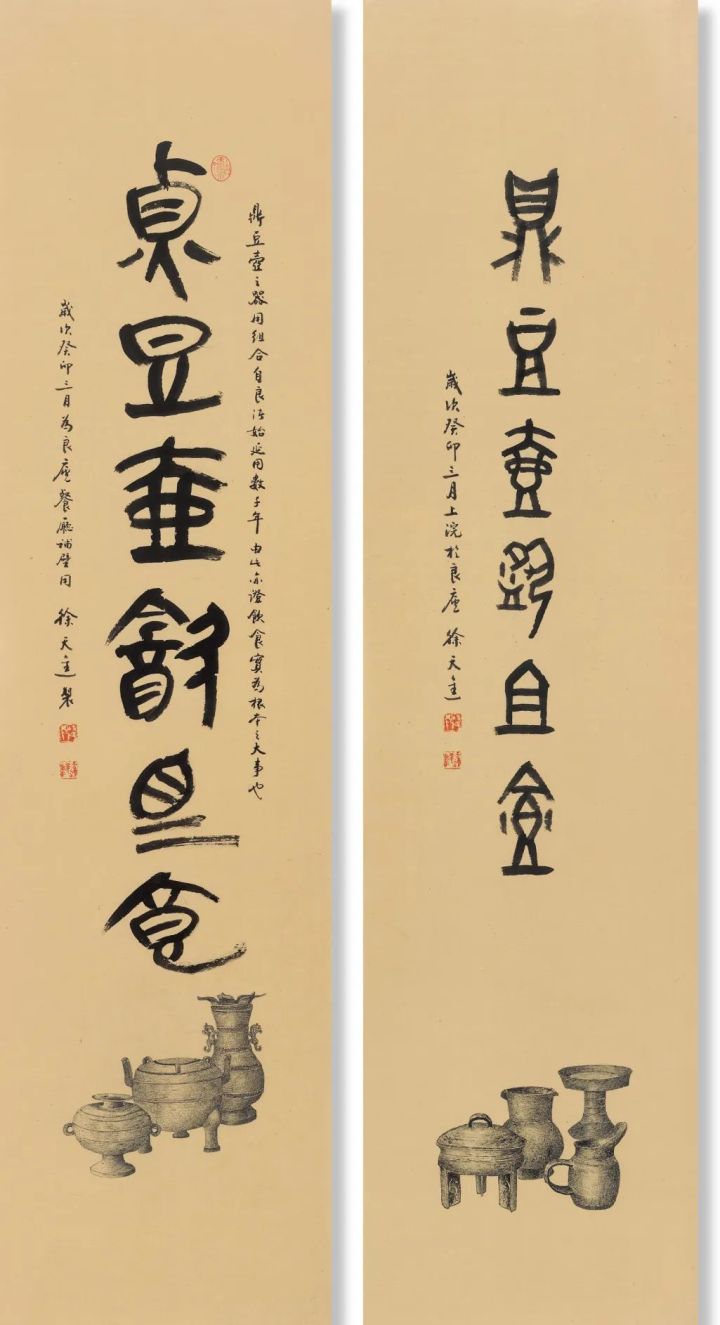 鼎豆壺飲且食
歲次癸卯三月上浣於良庵 徐天進
鼎豆壺之器用組合自良渚始延用數千年由此亦證飲食實為根本之大事也
鼎豆壺飲且食
歲次癸卯三月為良庵餐廳補壁用 徐天進製